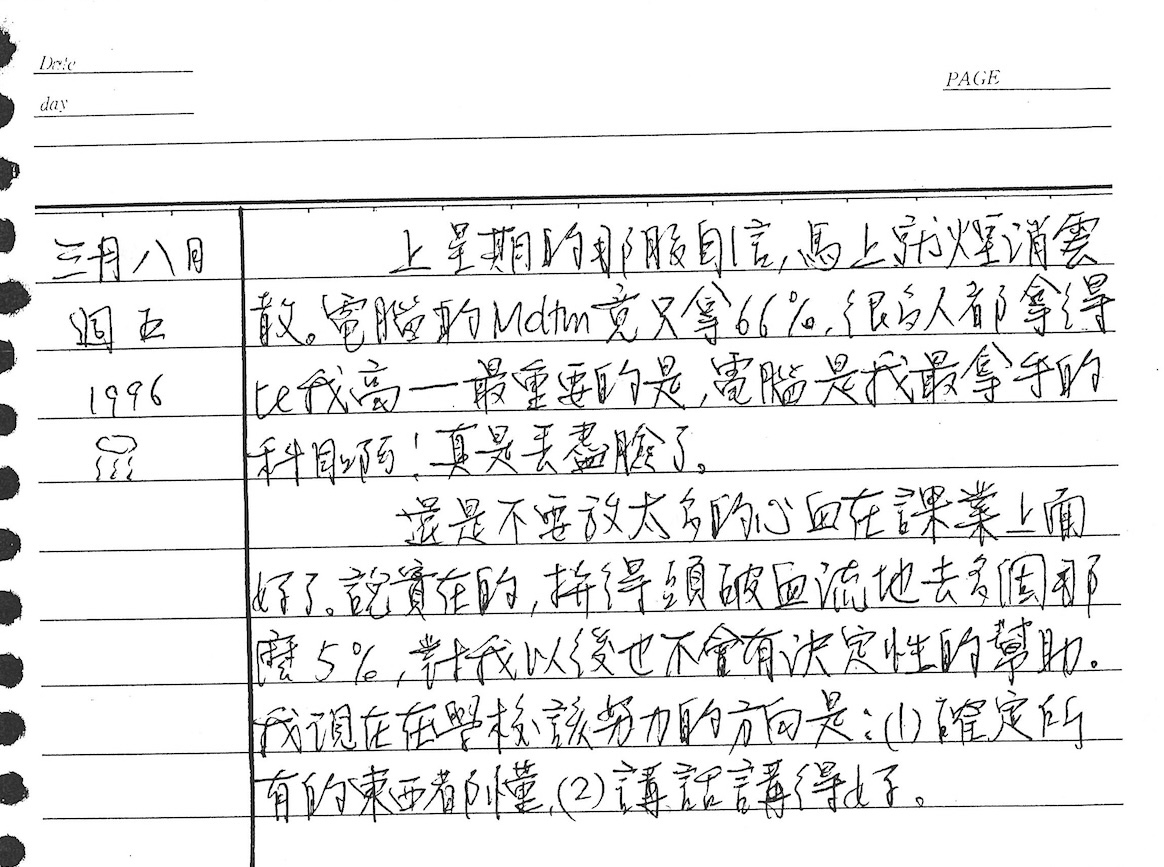 Date
day
PAGE
三月八日
週五
1996
上星期的那股自信,馬上就煙消雲
散。電腦的Mdtm竟只拿66%,很多人都拿得
比我高—最重要的是,電腦是我最拿手的
科目啊!真是丟盡臉了。
還是不要放太多的心血在課業上面
好了。說實在的,拚得頭破血流地去多個那
麼5%,對我以後也不會有決定性的幫助。
我現在在學校該努力的方向是:(1)確定所
有的東西都懂,(2)講話講得好。